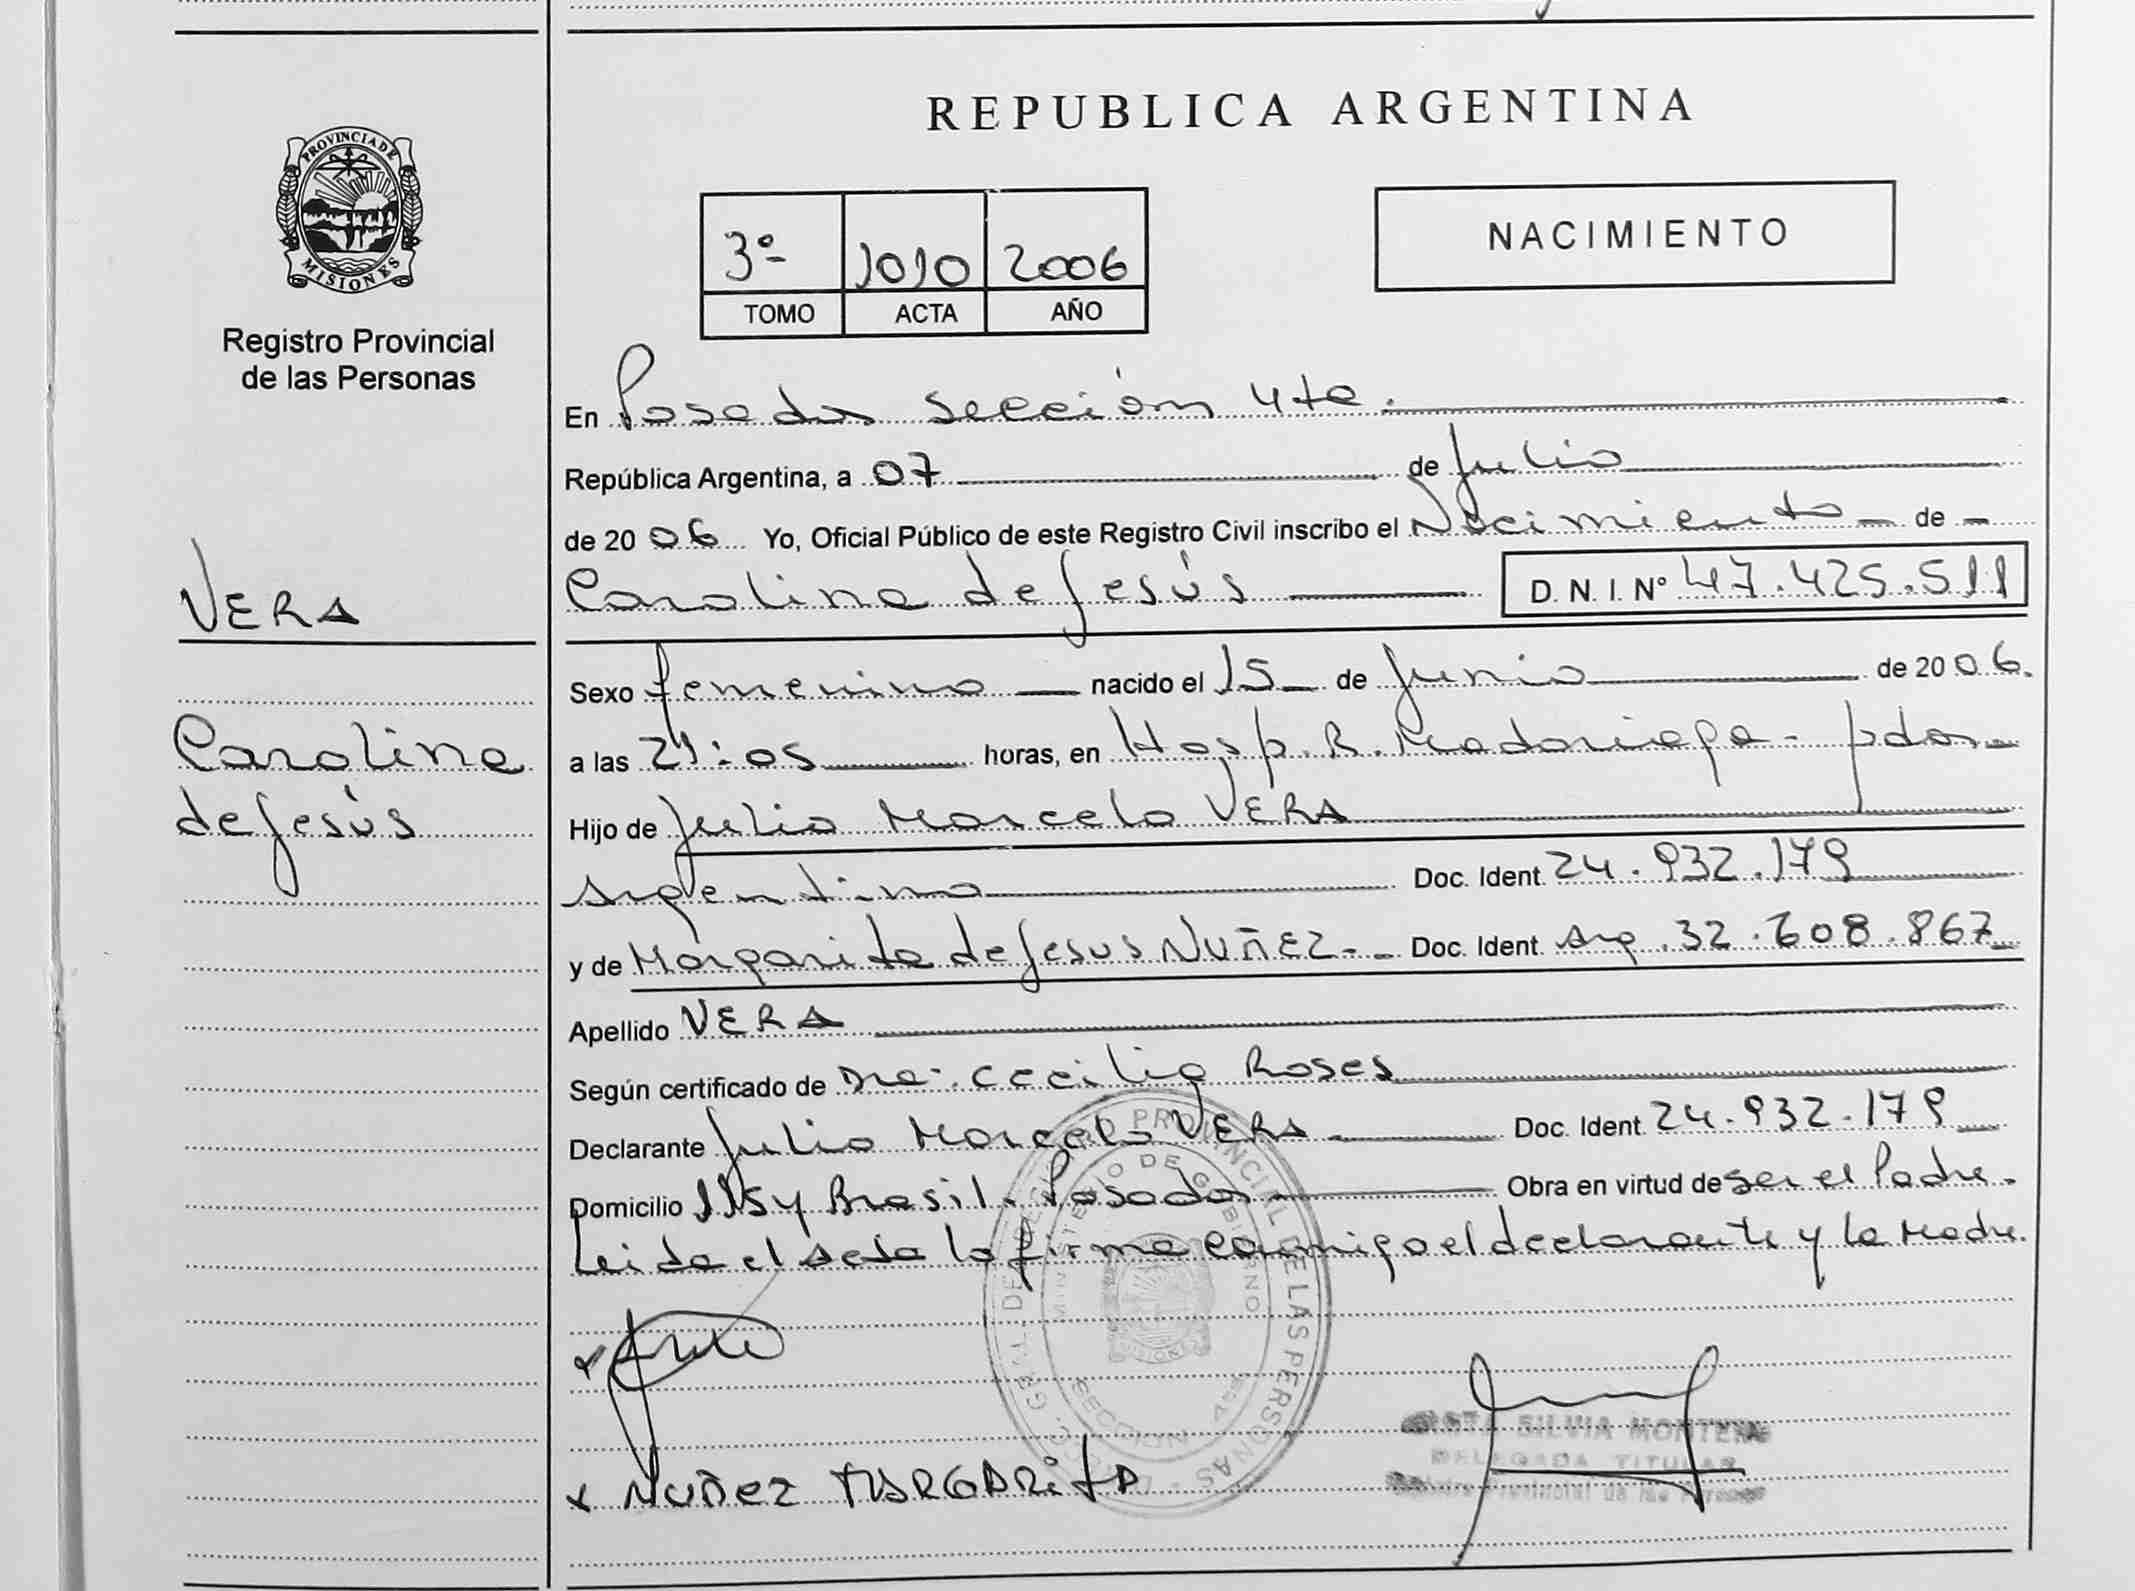 REPUBLICA ARGENTINA
PROVINCIA DE
MISIONES
Registro Provincial
de las Personas
3º 1010 2006
TOMO ACTA AÑO
NACIMIENTO
En Posadas sección 4ta.
República Argentina, a 07 de Julio
de 2006 Yo, Oficial Público de este Registro Civil inscribo el Nacimiento de
VERA
Carolina de Jesús
Carolina de Jesús D. N. I. Nº 47.425.511
Sexo femenino nacido el 15 de Junio de 2006.
a las 21:05 horas, en Hosp. R. Madariaga - pdas
Hijo de Julio Marcelo VERA
argentino Doc. Ident. 24.932.179
y de Margarita de Jesus NUÑEZ.- Doc. Ident. arg. 32.608.867
Apellido VERA
Según certificado de Dra. Cecilia Roses
Declarante Julio Marcelo VERA Doc. Ident. 24.932.179
Domicilio 115 y Brasil. Posadas Obra en virtud de ser el Padre.
Leida el acta la firma conmigo el declarante y la Madre.
x NUÑEZ MARGARITA
SILVIA
DELEGADA TITULAR
PROVINCIAL DE LAS PERSONAS
MINISTERIO DE GOBIERNO
MISIONES
SECCION 4ta